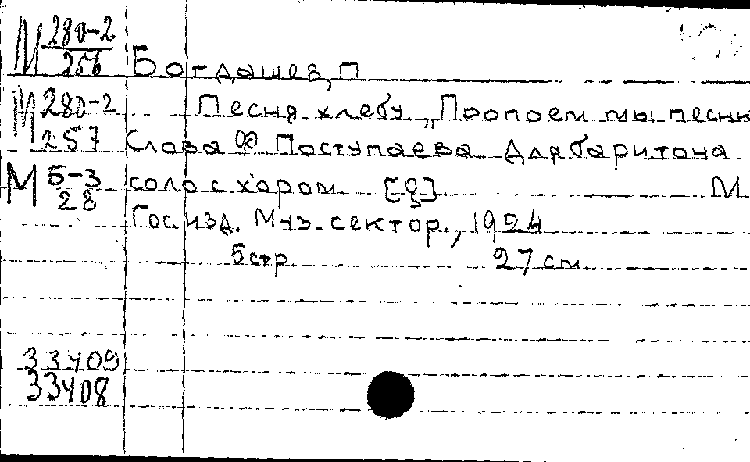 М 280-2
256
Богдашев, П
М 280-2
257
Песня хлебу „Пропоем мы песни
Слова Ф Поступаева Для баритона
М Б-3
28
соло с хором М
Гос. изд. Муз. сектор., 1924
5 стр. 27 см.
33409
33408